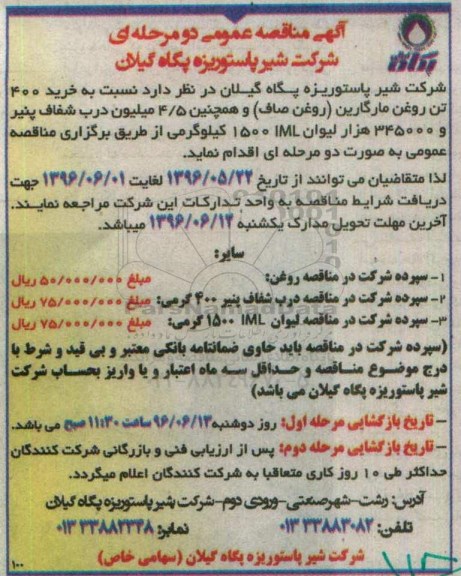 آگهی مناقصه عمومی دو مرحله ای
شرکت شیر پاستوریزه پگاه گیلان
پگاه
شرکت شیر پاستوریزه پگاه گیلان در نظر دارد نسبت به خرید ۴۰۰
تن روغن مارگارین (روغن صاف) و همچنین ۴/۵ میلیون درب شفاف پنیر
و ۳۴۵۰۰۰ هزار لیوان IML ۱۵۰۰ کیلوگرمی از طریق برگزاری مناقصه
عمومی به صورت دو مرحله ای اقدام نماید.
لذا متقاضیان می توانند از تاریخ ۱۳۹۶/۰۵/۲۲ لغایت ۱۳۹۶/۰۶/۰۱ جهت
دریافت شرایط مناقصه به واحد تدارکات این شرکت مراجعه نمایند.
آخرین مهلت تحویل مدارک یکشنبه ۱۳۹۶/۰۶/۱۲ میباشد.
سایر:
۱- سپرده شرکت در مناقصه روغن: مبلغ ۵۰/۰۰۰/۰۰۰ ریال
۲- سپرده شرکت در مناقصه درب شفاف پنیر ۴۰۰ گرمی: مبلغ ۷۵/۰۰۰/۰۰۰ ریال
۳- سپرده شرکت در مناقصه لیوان IML ۱۵۰۰ گرمی: مبلغ ۷۵/۰۰۰/۰۰۰ ریال
(سپرده شرکت در مناقصه باید حاوی ضمانتنامه بانکی معتبر و بی قید و شرط با
درج موضوع مناقصه و حداقل سه ماه اعتبار و یا واریز بحساب شرکت
شیر پاستوریزه پگاه گیلان می باشد)
– تاریخ بازگشایی مرحله اول: روز دوشنبه ۹۶/۰۶/۱۳ ساعت ۱۱:۳۰ صبح می باشد.
– تاریخ بازگشایی مرحله دوم: پس از ارزیابی فنی و بازرگانی شرکت کنندگان
حداکثر طی ۱۰ روز کاری متعاقبا به شرکت کنندگان اعلام میگردد.
آدرس: رشت-شهرصنعتی-ورودی دوم-شرکت شیر پاستوریزه پگاه گیلان
تلفن: ۳۳۸۸۳۰۸۲ ۰۱۳ نمابر: ۳۳۸۸۲۲۳۸ ۰۱۳
شرکت شیر پاستوریزه پگاه گیلان (سهامی خاص)
۱۰۰